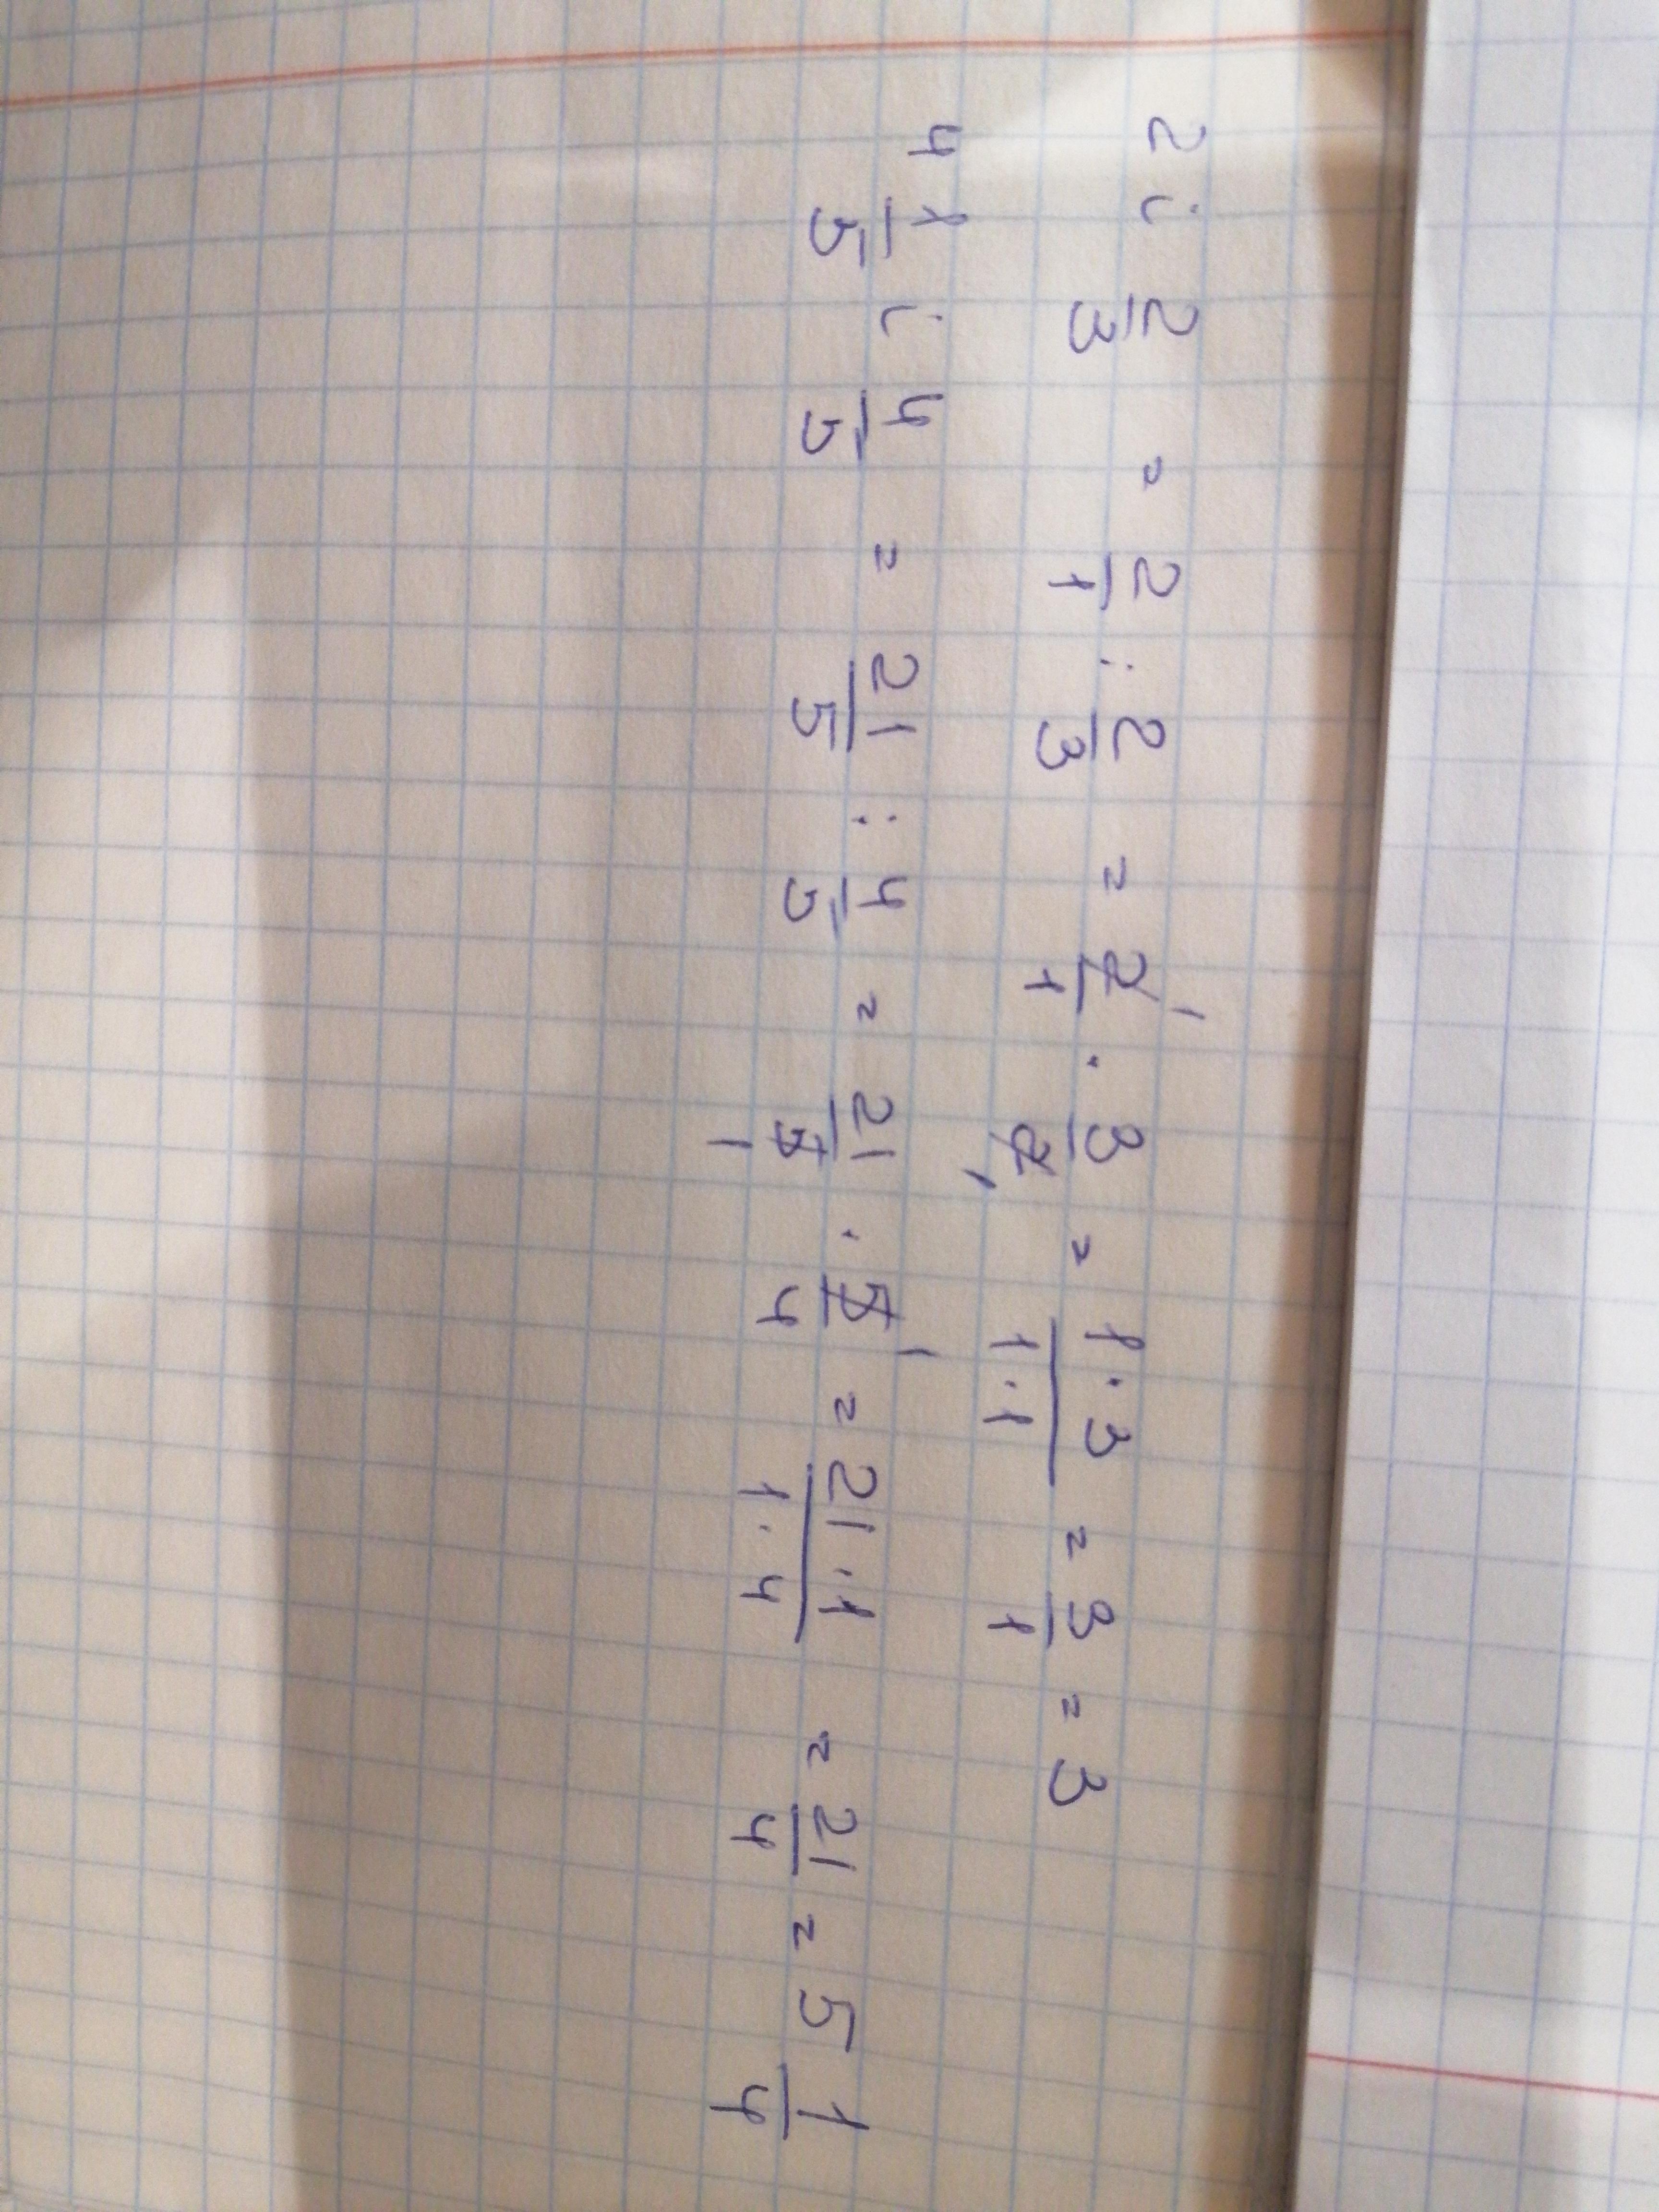 2 i 2/3 = 2/1 : 2/3 = 2/1 ¹ · 3/2 ₁ = 1·3/1·1 = 3/1 = 3
4 1/5 i 4/5 = 21/5 : 4/5 = 21/5 ₁ · 5/4 ¹ = 21·1/1·4 = 21/4 = 5 1/4